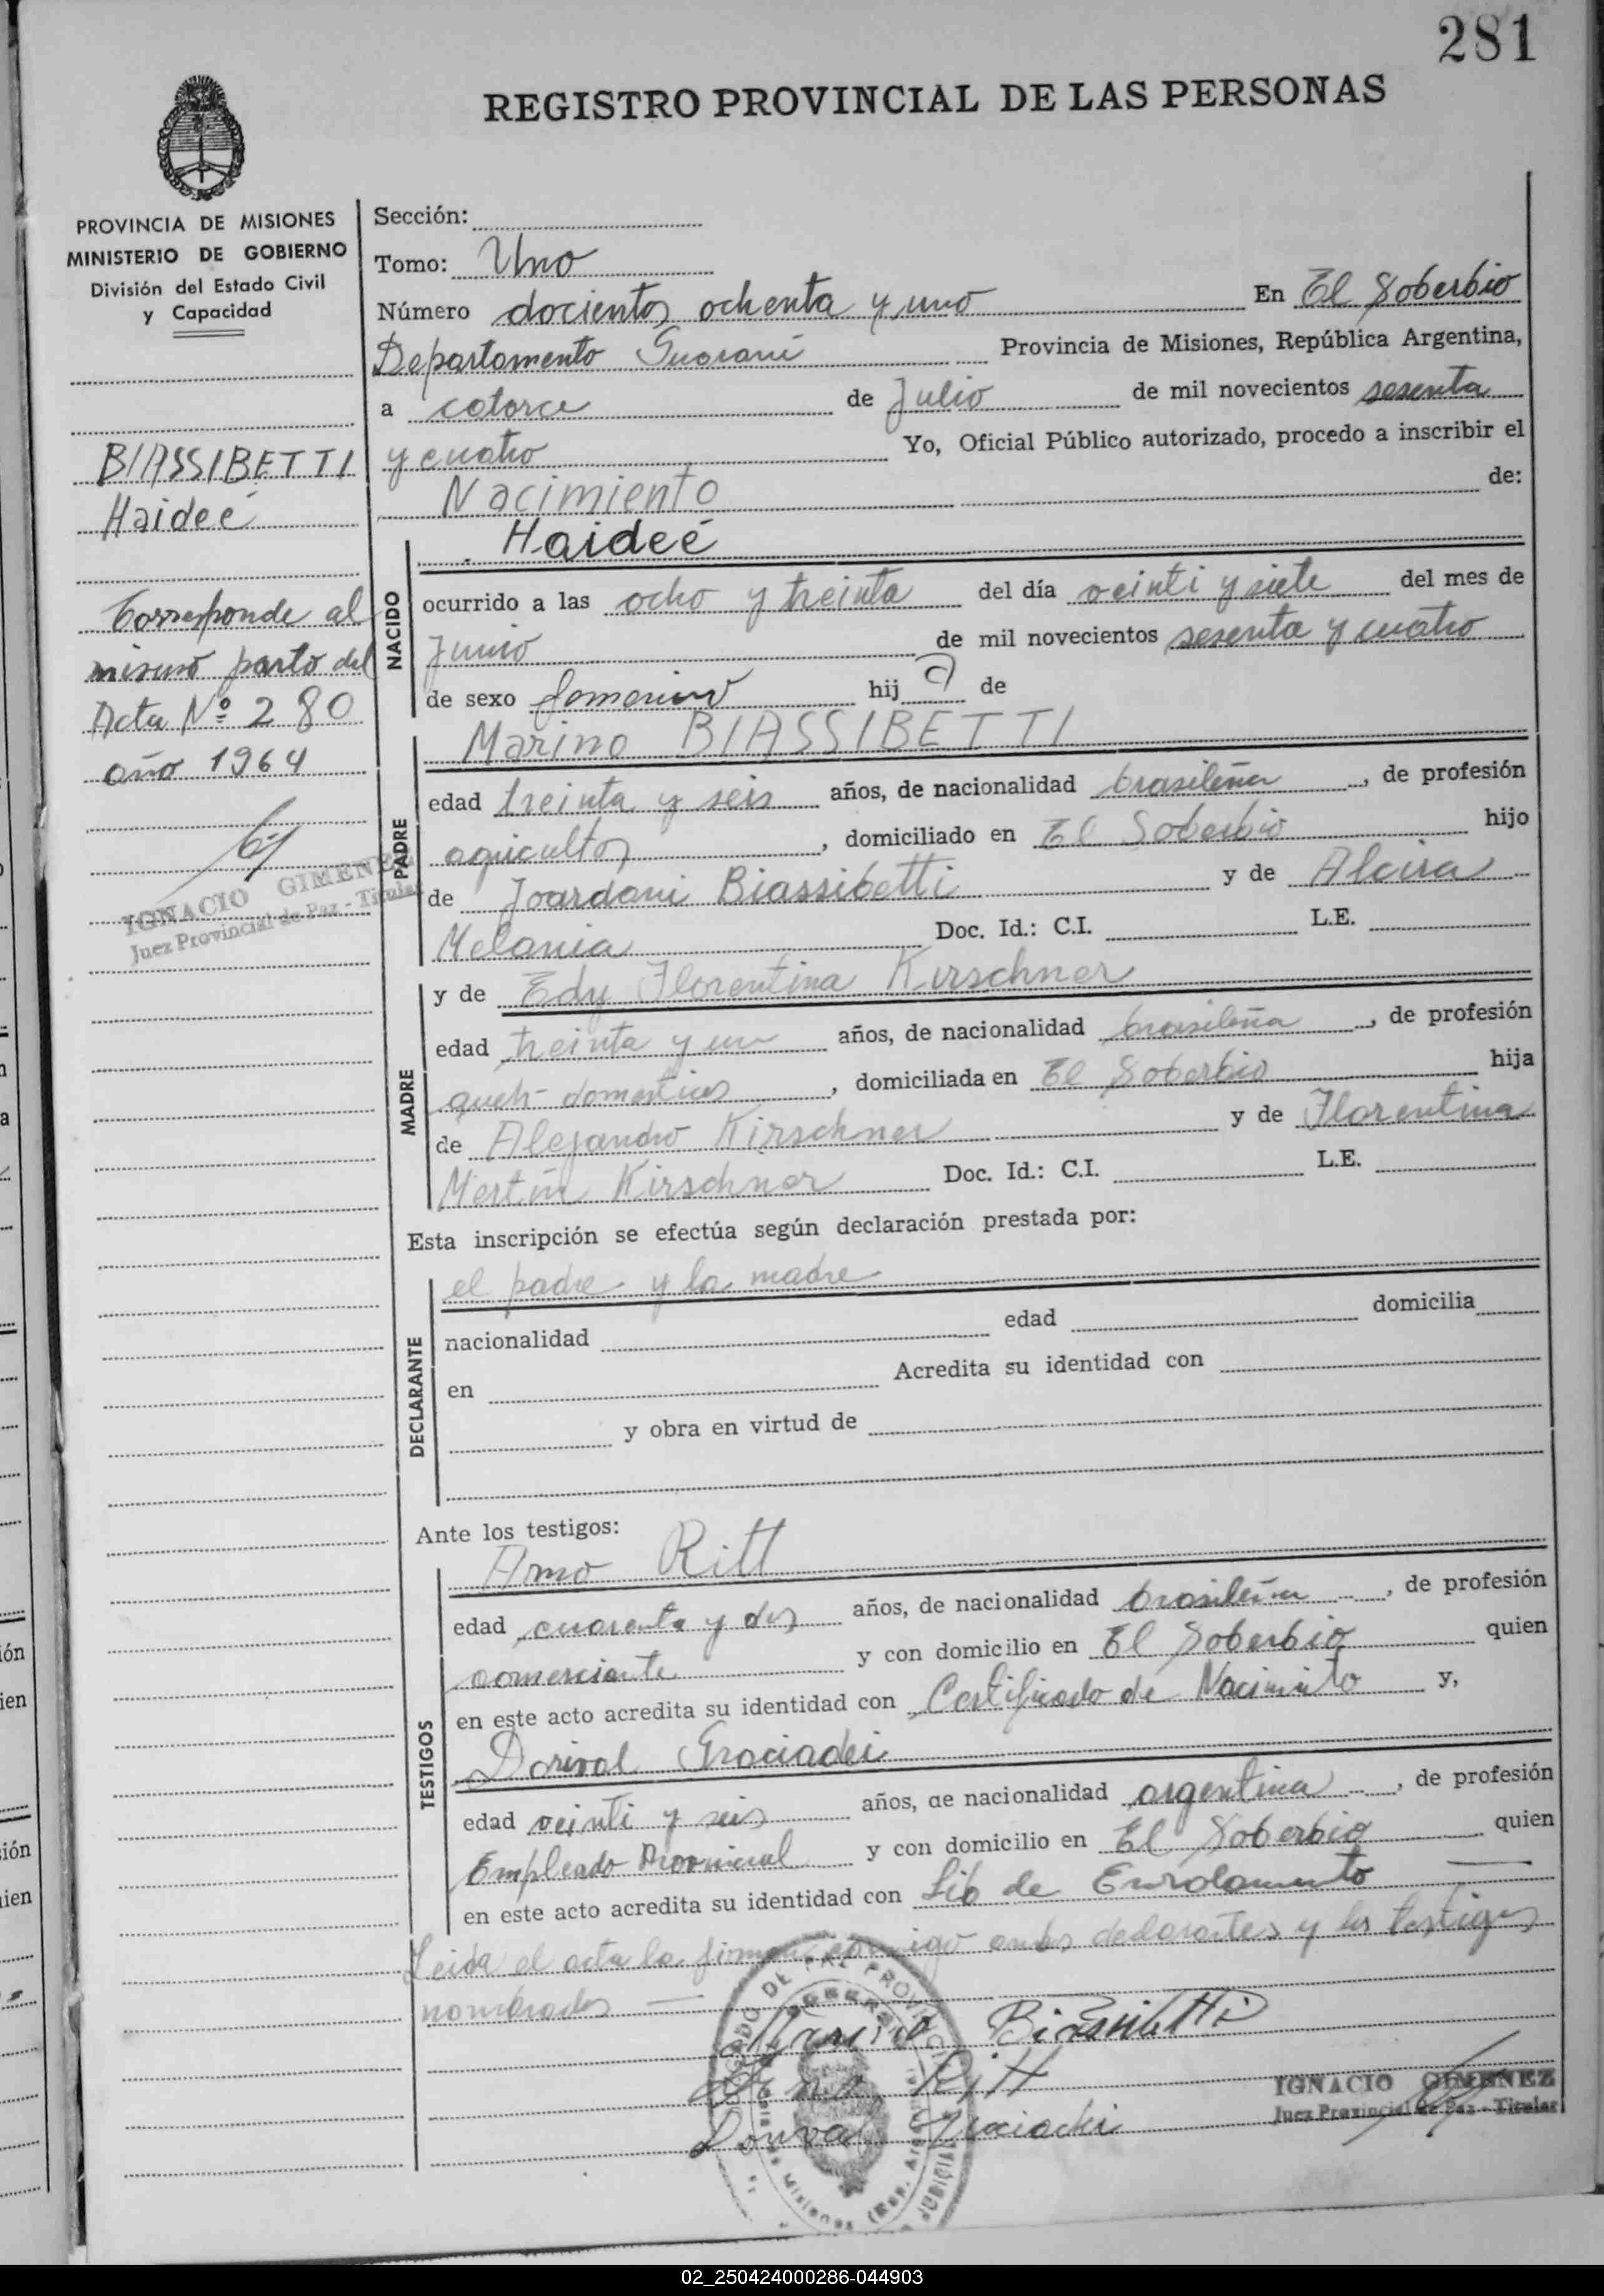 281
REGISTRO PROVINCIAL DE LAS PERSONAS
PROVINCIA DE MISIONES
MINISTERIO DE GOBIERNO
División del Estado Civil
y Capacidad
BIASSIBETTI
Haideé
Corresponde al
mismo parto del
Acta Nº 280
año 1964
IGNACIO GIMENEZ
Juez Provincial de Paz - Titular
Sección:
Tomo: Uno
Número docientos ochenta y uno En El Soberbio
Departamento Guaraní Provincia de Misiones, República Argentina,
a catorce de Julio de mil novecientos sesenta
y cuatro Yo, Oficial Público autorizado, procedo a inscribir el
Nacimiento de:
NACIDO
Haideé
ocurrido a las ocho y treinta del día veinti y siete del mes de
Junio de mil novecientos sesenta y cuatro
de sexo femenino hija de
PADRE
Marino BIASSIBETTI
edad treinta y seis años, de nacionalidad brasileña, de profesión
agricultor, domiciliado en El Soberbio hijo
de Joardani Biassibetti y de Alcira
Melania Doc. Id.: C.I. L.E.
MADRE
y de Edy Florentina Kirschner
edad treinta y un años, de nacionalidad brasileña, de profesión
queh- domesticos, domiciliada en El Soberbio hija
de Alejandro Kirschner y de Florentina
Kirschner Doc. Id.: C.I. L.E.
Esta inscripción se efectúa según declaración prestada por:
DECLARANTE
el padre y la madre
nacionalidad edad domicilia
en Acredita su identidad con
y obra en virtud de
Ante los testigos:
TESTIGOS
Arno Ritt
edad cuarenta y dos años, de nacionalidad brasileña, de profesión
comerciante y con domicilio en El Soberbio quien
en este acto acredita su identidad con Certificado de Nacimiento y,
Dorival Graciadei
edad veinti y seis años, de nacionalidad argentina, de profesión
Empleado Provincial y con domicilio en El Soberbio quien
en este acto acredita su identidad con Lib de Enrolamiento
Leida el acta la firman conmigo ambos declarantes y los testigos
nombrados
Marino Biassibetti
Arno Ritt
Dorival Graciadei
IGNACIO GIMENEZ
Juez Provincial de Paz - Titular
02_250424000286-044903